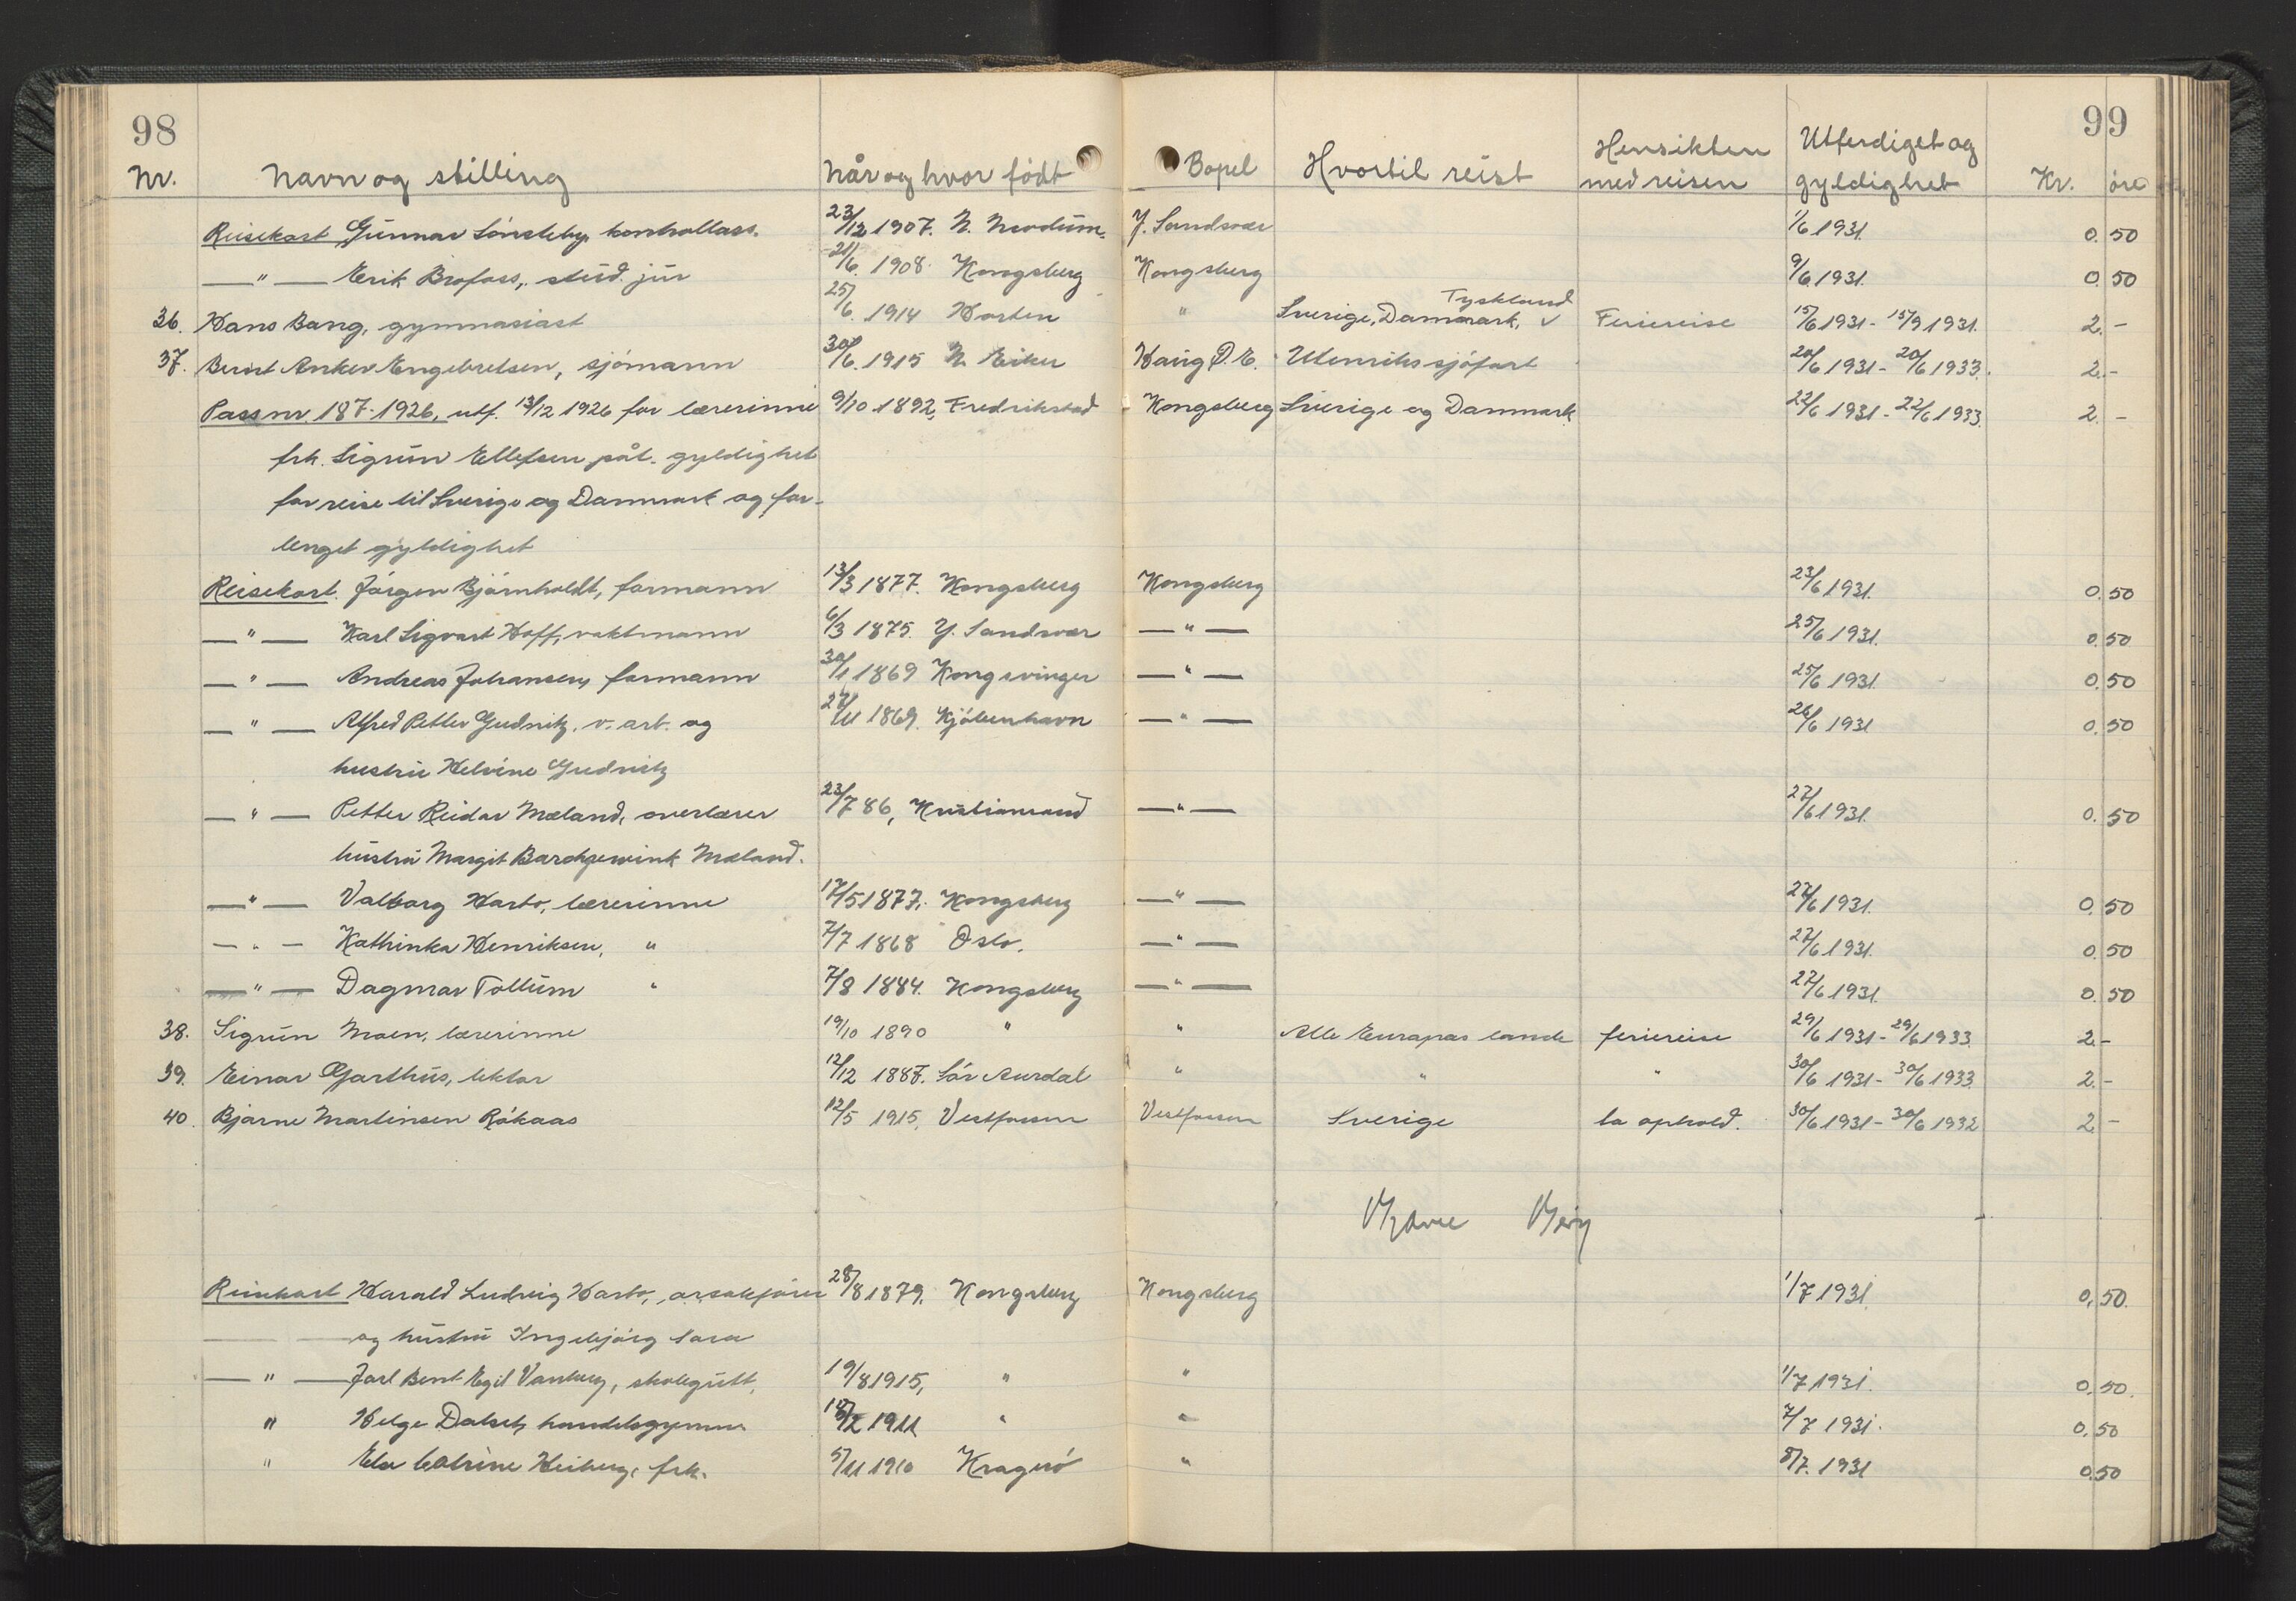 98 99
Nr. Navn og stilling Når og hvor født Bopel Hvortil reist Hensikten med reisen Utferdiget og gyldighet Kr. øre
Reisekort Gunnar Lónsteby, kontrollass. 23/12 1907. N. Modum. Y. Sandsvær 1/6 1931. 0. 50
—"— Erik Brofoss, stud. jur 21/6. 1908. Kongsberg Kongsberg 9/6 1931. 0 50
36. Hans Bang, gymnasiast 25/6. 1914 Horten " Sverige, Danmark, v Tyskland Feriereise 15/6 1931 - 15/9 1931. 2. -
37. Bernt Anker Engebretsen, sjómann 30/6. 1915 N. Eiker Haug Ö. E. Utenriks sjöfart 20/6 1931 - 20/6 1933. 2. -
Pass nr. 187-1926, utf. 13/12 1926 for lærerinne 9/10 1892, Fredrikstad Kongsberg Sverige og Danmark 22/6 1931 - 22/6 1933. 2. -
frk. Sigrun Ellefsen påt. gyldighet
for reise til Sverige og Danmark og for-
lenget gyldighet
Reisekort. Jórgen Bjórnholdt, formann 13/3 1877. Kongsberg Kongsberg 23/6 1931. 0. 50
—"— Karl Sigvart Hoff, vaktmann 6/3 1875. Y. Sandsvær —"— 25/6 1931. 0. 50
—"— Andreas Johansen, formann 30/1 1869 Kongsvinger —"— 25/6 1931. 0. 50
—"— Alfred Petter Gudnitz, v. arb. og 27/11 1869. Kjóbenhavn —"— 26/6 1931 0. 50
hustru Helvine Gudnitz
—"— Petter Reidar Mæland, overlærer 23/7 86, Kristiansand —"— 27/6 1931. 0. 50
hustru Margit Mæland.
—"— Valborg Harbo, lærerinne 17/5 1877. Kongsberg —"— 27/6 1931. 0. 50
—"— Kathinka Henriksen, " 7/7 1868 Oslo. —"— 27/6 1931. 0. 50
—"— Dagmar Tollum " 7/8 1884. Kongsberg —"— 27/6 1931. 0. 50
38. Sigrun Moen, lærerinne 19/10 1890 " " Alle Europas lande feriereise 29/6 1931 - 29/6 1933. 2. -
39. Einar Gjarthus, lektor 12/12 1887. Sór Aurdal " " " 30/6 1931 - 30/6 1933. 2. -
40. Bjarne Martinsen Råkaas 12/5 1915, Vestfossen Vestfossen Sverige ta ophold. 30/6 1931 - 30/6 1932 2. -
Reisekort Harald Ludvig Harbo, 28/8 1879. Kongsberg Kongsberg 1/7 1931. 0, 50.
og hustru Ingebjórg Sara
—"— Jarl Bent Egil Vanberg, skolegutt, 19/8 1915, " " 1/7 1931. 0, 50.
" Helge Dalseth, handelsgymn. 18/2 1911 " " 7/7 1931. 0, 50
" Else Catrine Heiberg, frk. 5/11 1910 Krageró " 8/7. 1931 0. 50